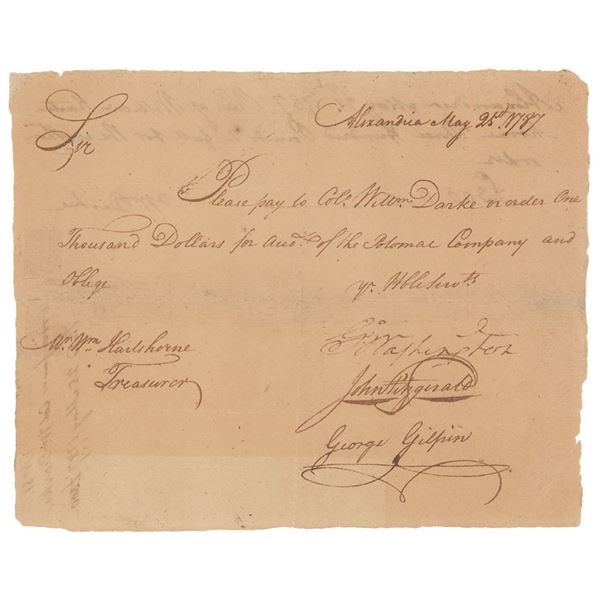 Alexandria May 25d. 1787
Sir
Please pay to Colo. Willm. Darke or order One
Thousand Dollars for Acct. of the Potomac Company and
Oblege yr. Hble Servts
Go. Washington
Mr. Wm. Hartshorne
Treasurer
John Fitzgerald
George Gilpin